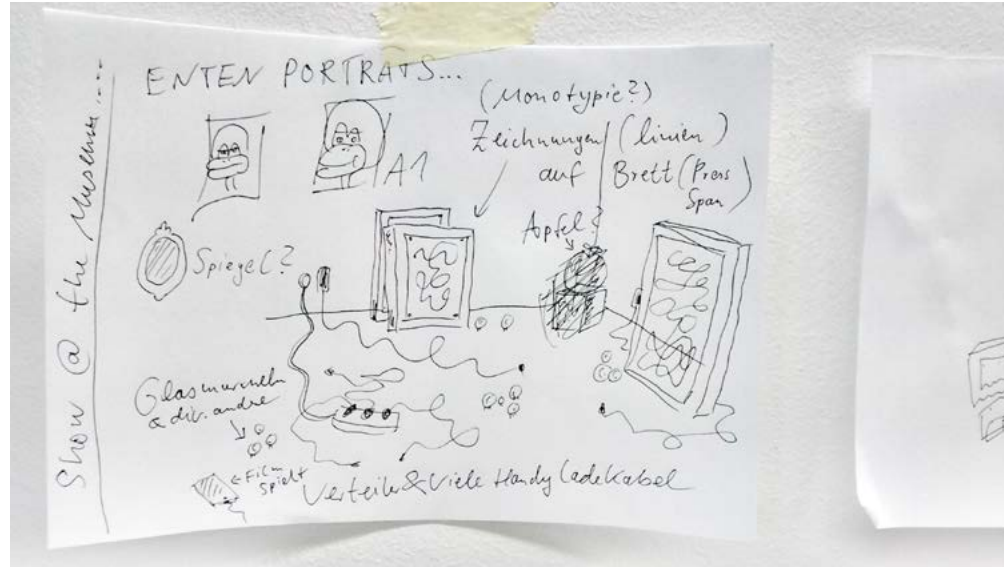 Show @ the Museum...
ENTEN PORTRATS...
A1
(Monotypie?)
Zeichnungen (linien)
auf Brett (Press
Span)
Apfel?
Spiegel?
Glasmurmeln
& div. andre
←Film
spielt
Verteiler & Viele Handy Ladekabel